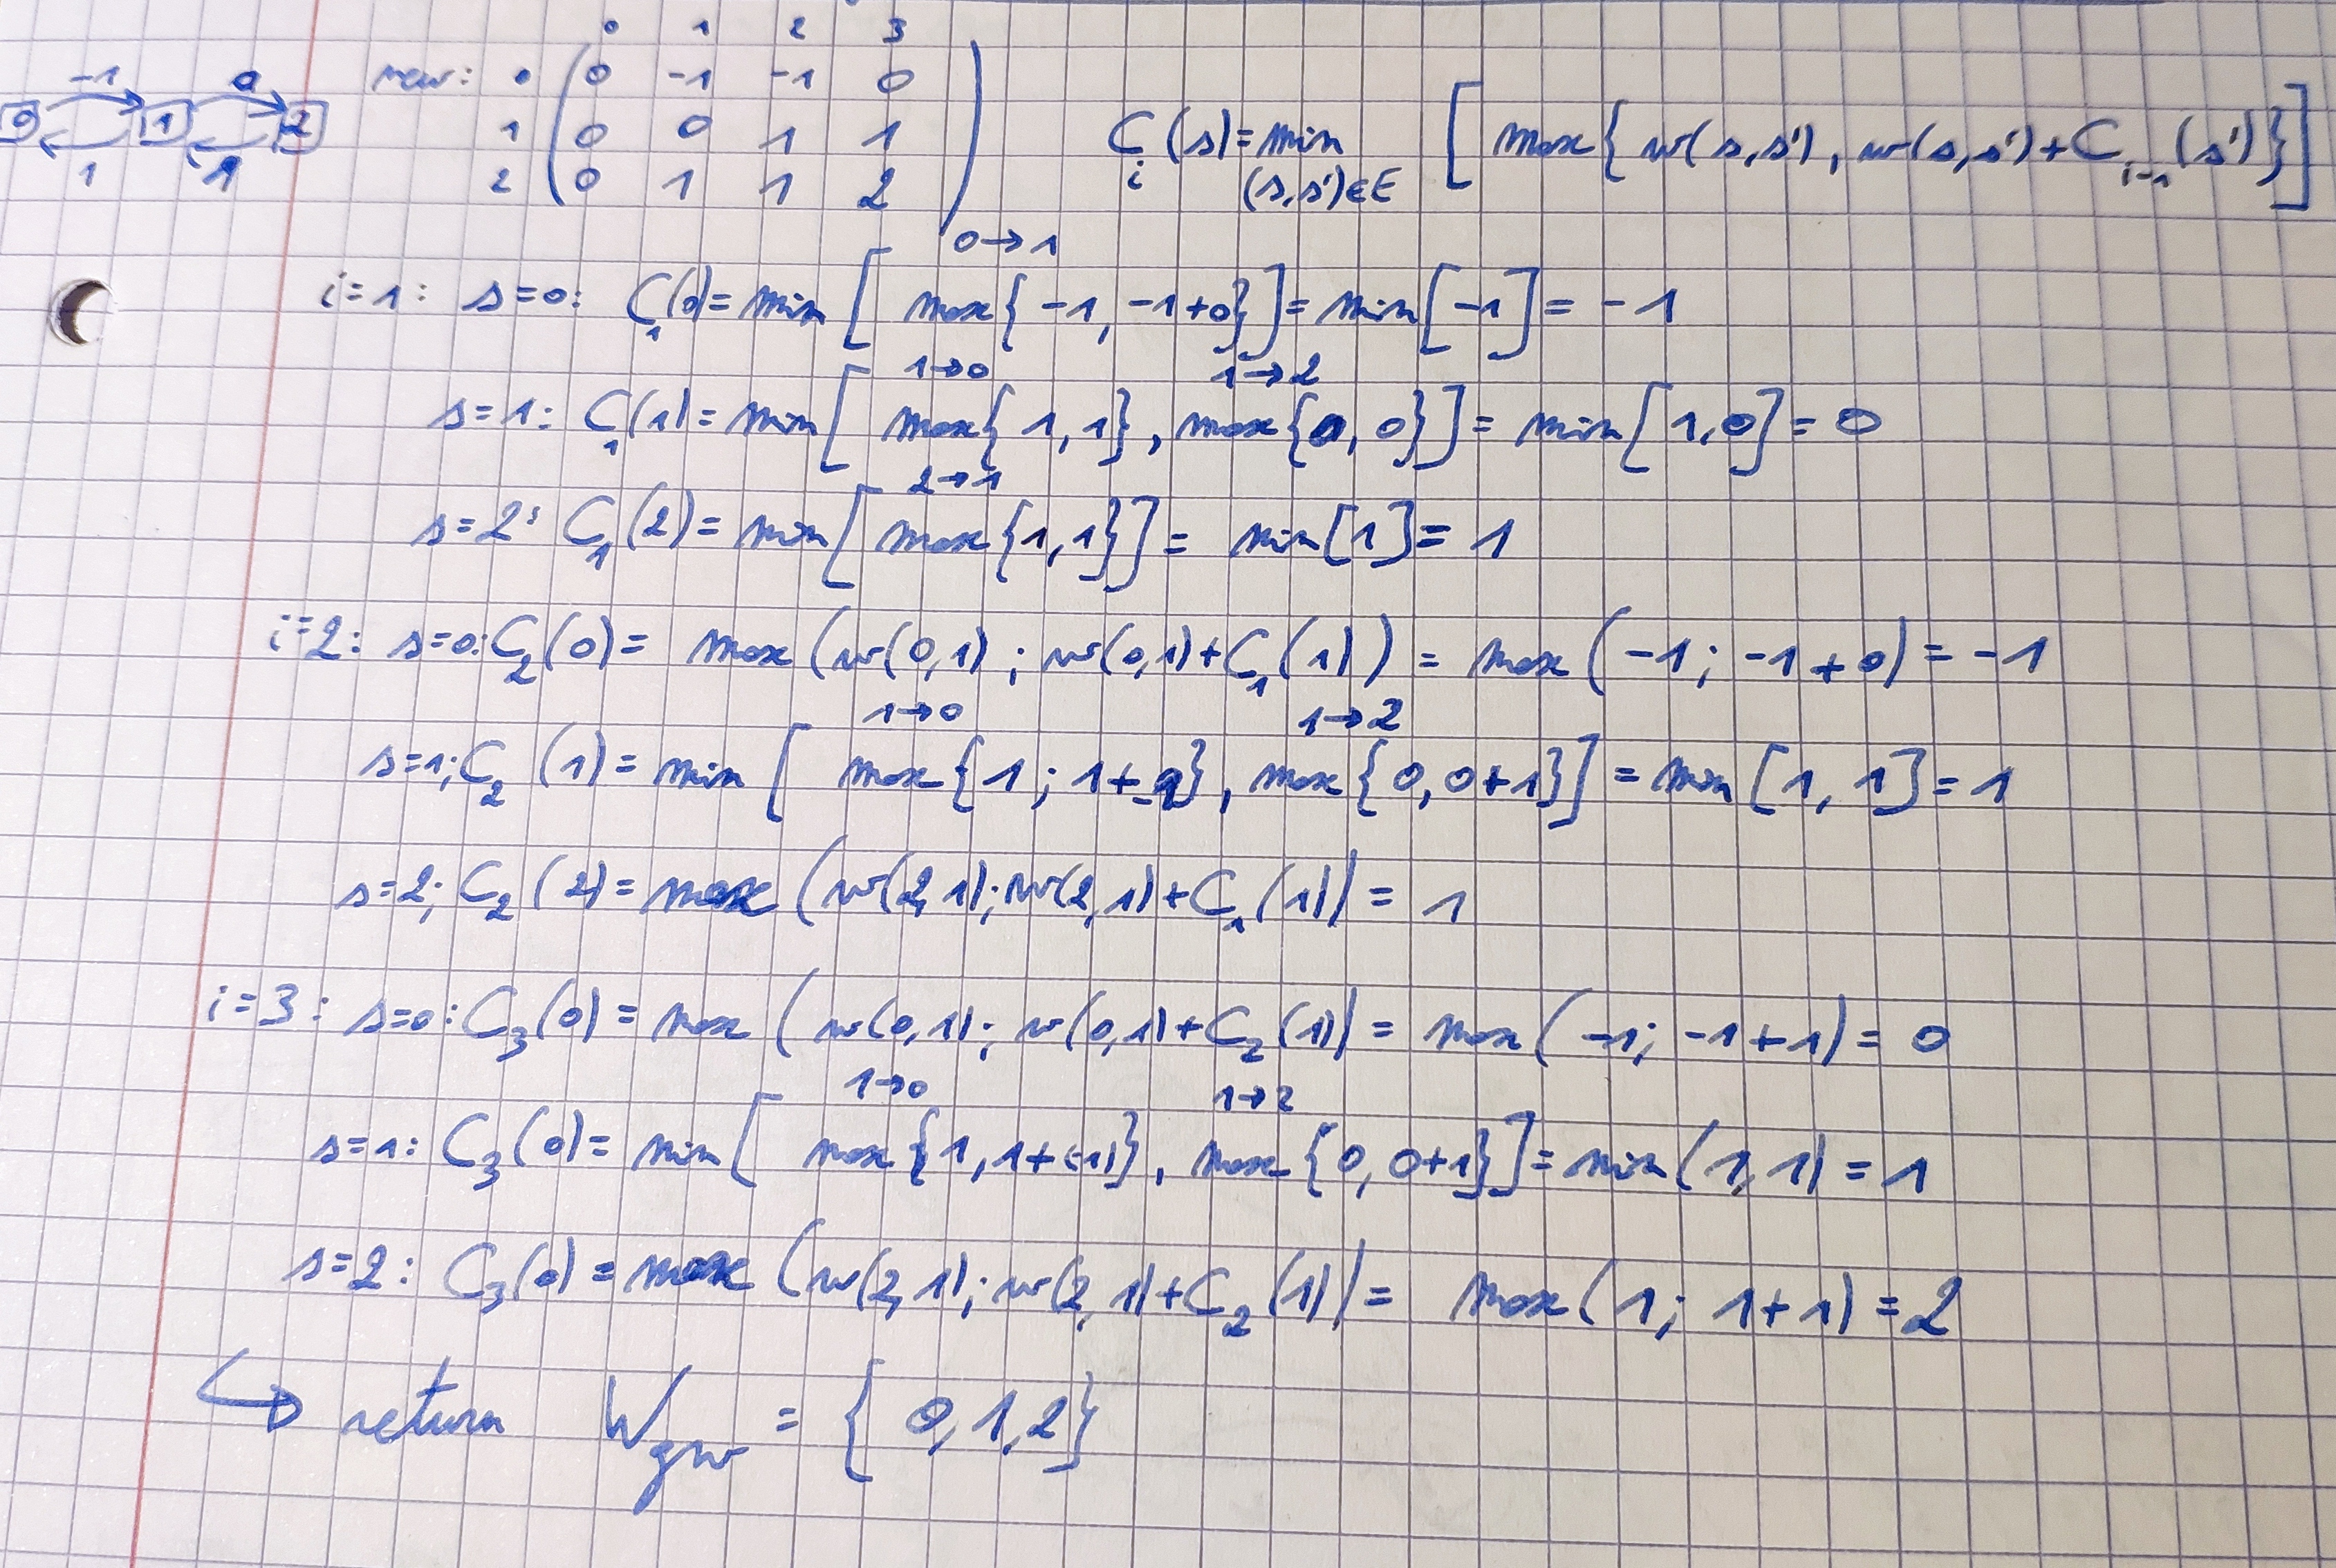 0 1 2 3
-1 0 new: 0 0 -1 -1 0
0 1 2 1 0 0 1 1 C_i(s) = min [max{w(s,s'), w(s,s')+C_{i-1}(s')}]
1 1 2 0 1 1 2 (s,s')∈E
0→1
i=1: s=0: C_1(0) = min [max{-1, -1+0}] = min[-1] = -1
1→0 1→2
s=1: C_1(1) = min[max{1,1}, max{0,0}] = min[1,0] = 0
2→1
s=2: C_1(2) = min[max{1,1}] = min[1] = 1
i=2: s=0: C_2(0) = max(w(0,1); w(0,1)+C_1(1)) = max(-1; -1+0) = -1
1→0 1→2
s=1; C_2(1) = min[max{1; 1+-1}, max{0, 0+1}] = min[1,1] = 1
s=2; C_2(2) = max(w(2,1); w(2,1)+C_1(1)) = 1
i=3: s=0: C_3(0) = max(w(0,1); w(0,1)+C_2(1)) = max(-1; -1+1) = 0
1→0 1→2
s=1: C_3(0) = min[max{1, 1+(-1)}, max{0, 0+1}] = min(1,1) = 1
s=2: C_3(0) = max(w(2,1); w(2,1)+C_2(1)) = max(1; 1+1) = 2
↪ return W_gw = {0,1,2}